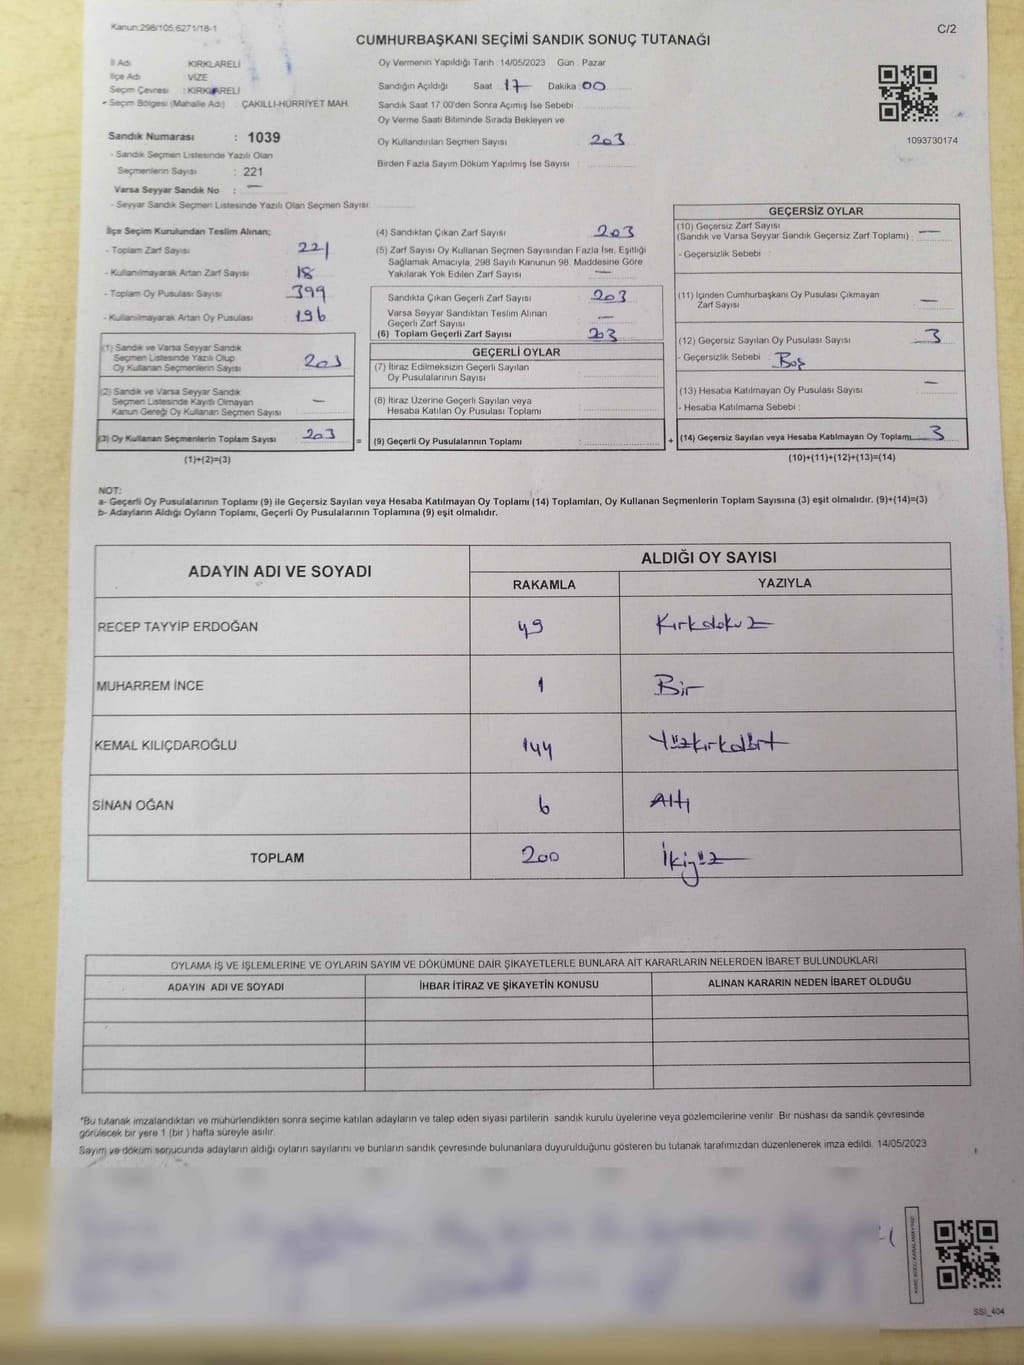 Kanun:298/105,6271/18-1
C/2
CUMHURBAŞKANI SEÇİMİ SANDIK SONUÇ TUTANAĞI
İl Adı KIRKLARELİ
İlçe Adı VİZE
Seçim Çevresi : KIRKLARELİ
Seçim Bölgesi (Mahalle Adı) : ÇAKILLI-HÜRRİYET MAH.
Sandık Numarası : 1039
- Sandık Seçmen Listesinde Yazılı Olan
Seçmenlerin Sayısı : 221
Varsa Seyyar Sandık No : —
- Seyyar Sandık Seçmen Listesinde Yazılı Olan Seçmen Sayısı:
Oy Vermenin Yapıldığı Tarih : 14/05/2023 Gün : Pazar
Sandığın Açıldığı Saat : 17 Dakika : 00
Sandık Saat 17.00'den Sonra Açımış İse Sebebi :
Oy Verme Saati Bitiminde Sırada Bekleyen ve
Oy Kullandırılan Seçmen Sayısı : 203
Birden Fazla Sayım Döküm Yapılmış İse Sayısı :
1093730174
İlçe Seçim Kurulundan Teslim Alınan;
- Toplam Zarf Sayısı : 221
- Kullanılmayarak Artan Zarf Sayısı : 18
- Toplam Oy Pusulası Sayısı : 399
- Kullanılmayarak Artan Oy Pusulası : 196
(1) Sandık ve Varsa Seyyar Sandık
Seçmen Listesinde Yazılı Olup
Oy Kullanan Seçmenlerin Sayısı : 203
(2) Sandık ve Varsa Seyyar Sandık
Seçmen Listesinde Kayıtlı Olmayan
Kanun Gereği Oy Kullanan Seçmen Sayısı : —
(3) Oy Kullanan Seçmenlerin Toplam Sayısı : 203
(1)+(2)=(3)
=
(4) Sandıktan Çıkan Zarf Sayısı : 203
(5) Zarf Sayısı Oy Kullanan Seçmen Sayısından Fazla İse, Eşitliği
Sağlamak Amacıyla, 298 Sayılı Kanunun 98. Maddesine Göre
Yakılarak Yok Edilen Zarf Sayısı : —
Sandıkta Çıkan Geçerli Zarf Sayısı : 203
Varsa Seyyar Sandıktan Teslim Alınan
Geçerli Zarf Sayısı : —
(6) Toplam Geçerli Zarf Sayısı : 203
GEÇERLİ OYLAR
(7) İtiraz Edilmeksizin Geçerli Sayılan
Oy Pusulalarının Sayısı :
(8) İtiraz Üzerine Geçerli Sayılan veya
Hesaba Katılan Oy Pusulası Toplamı :
(9) Geçerli Oy Pusulalarının Toplamı :
+
GEÇERSİZ OYLAR
(10) Geçersiz Zarf Sayısı
(Sandık ve Varsa Seyyar Sandık Geçersiz Zarf Toplamı) : —
- Geçersizlik Sebebi :
(11) İçinden Cumhurbaşkanı Oy Pusulası Çıkmayan
Zarf Sayısı : —
(12) Geçersiz Sayılan Oy Pusulası Sayısı : 3
- Geçersizlik Sebebi : Boş
(13) Hesaba Katılmayan Oy Pusulası Sayısı : —
- Hesaba Katılmama Sebebi :
(14) Geçersiz Sayılan veya Hesaba Katılmayan Oy Toplamı : 3
(10)+(11)+(12)+(13)=(14)
NOT:
a- Geçerli Oy Pusulalarının Toplamı (9) ile Geçersiz Sayılan veya Hesaba Katılmayan Oy Toplamı (14) Toplamları, Oy Kullanan Seçmenlerin Toplam Sayısına (3) eşit olmalıdır. (9)+(14)=(3)
b- Adayların Aldığı Oyların Toplamı, Geçerli Oy Pusulalarının Toplamına (9) eşit olmalıdır.
ADAYIN ADI VE SOYADI
ALDIĞI OY SAYISI
RAKAMLA YAZIYLA
RECEP TAYYİP ERDOĞAN 49 Kırkdokuz
MUHARREM İNCE 1 Bir
KEMAL KILIÇDAROĞLU 144 Yüzkırkdört
SİNAN OĞAN 6 Altı
TOPLAM 200 İkiyüz
OYLAMA İŞ VE İŞLEMLERİNE VE OYLARIN SAYIM VE DÖKÜMÜNE DAİR ŞİKAYETLERLE BUNLARA AİT KARARLARIN NELERDEN İBARET BULUNDUKLARI
ADAYIN ADI VE SOYADI İHBAR İTİRAZ VE ŞİKAYETİN KONUSU ALINAN KARARIN NEDEN İBARET OLDUĞU
*Bu tutanak imzalandıktan ve mühürlendikten sonra seçime katılan adayların ve talep eden siyasi partilerin sandık kurulu üyelerine veya gözlemcilerine verilir. Bir nüshası da sandık çevresinde
görülecek bir yere 1 (bir ) hafta süreyle asılır.
Sayım ve döküm sonucunda adayların aldığı oyların sayılarını ve bunların sandık çevresinde bulunanlara duyurulduğunu gösteren bu tutanak tarafımızdan düzenlenerek imza edildi. 14/05/2023
SSİ_404